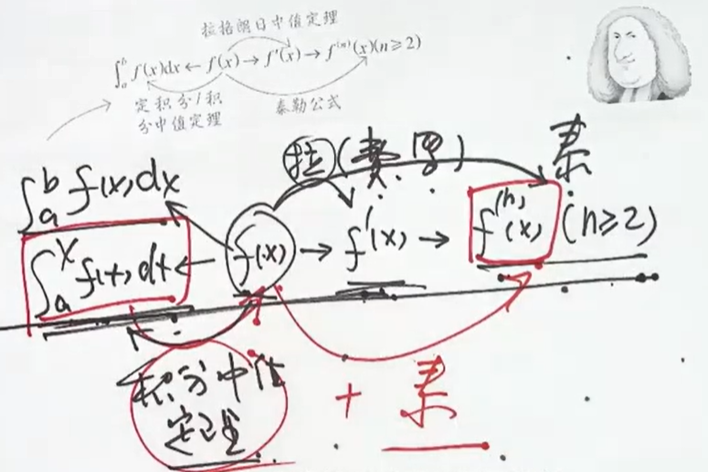 拉格朗日中值定理
∫ₐᵇ f(x)dx ← f(x) → f′(x) → f⁽ⁿ⁾(x)(n≥2)
定积分/积
分中值定理
泰勒公式
拉(费罗) 泰
∫ₐᵇ f(x)dx
∫ₐˣ f(t)dt ← f(x) → f′(x) → f⁽ⁿ⁾(x) (n≥2)
积分中值
定理
+ 泰